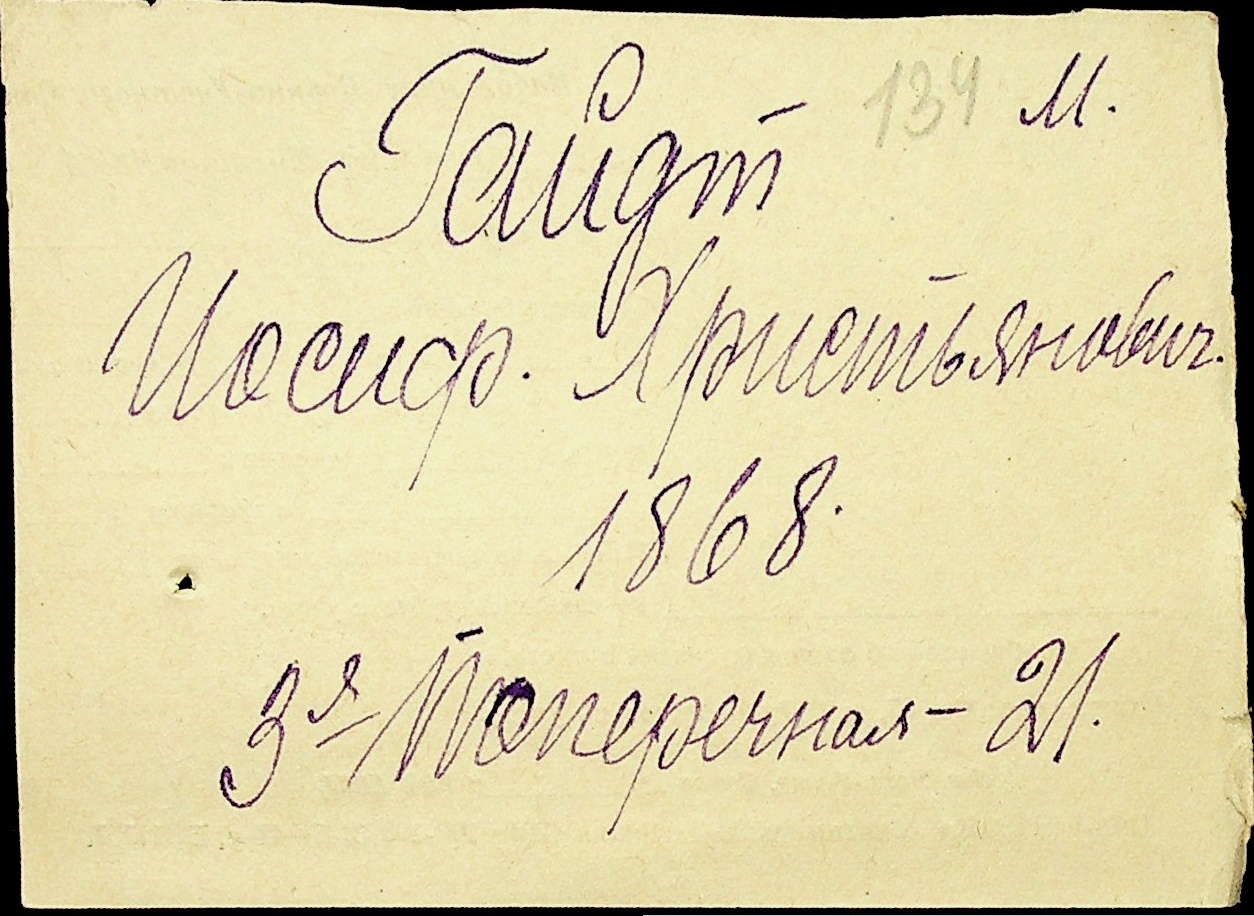 Гайдт 134 М.
Иосиф. Христьянович.
1868.
3я Поперечная - 21.